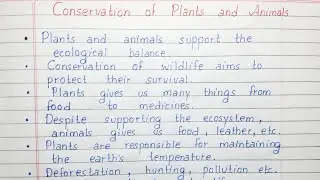 Conservation of Plants and Animals
• Plants and animals support the
ecological balance.
• Conservation of wildlife aims to
protect their survival.
• Plants gives us many things from
food to medicines.
• Despite supporting the ecosystem,
animals gives us food, leather, etc.
• Plants are responsible for maintaining
the earth's temperature.
• Deforestation, hunting, pollution etc.